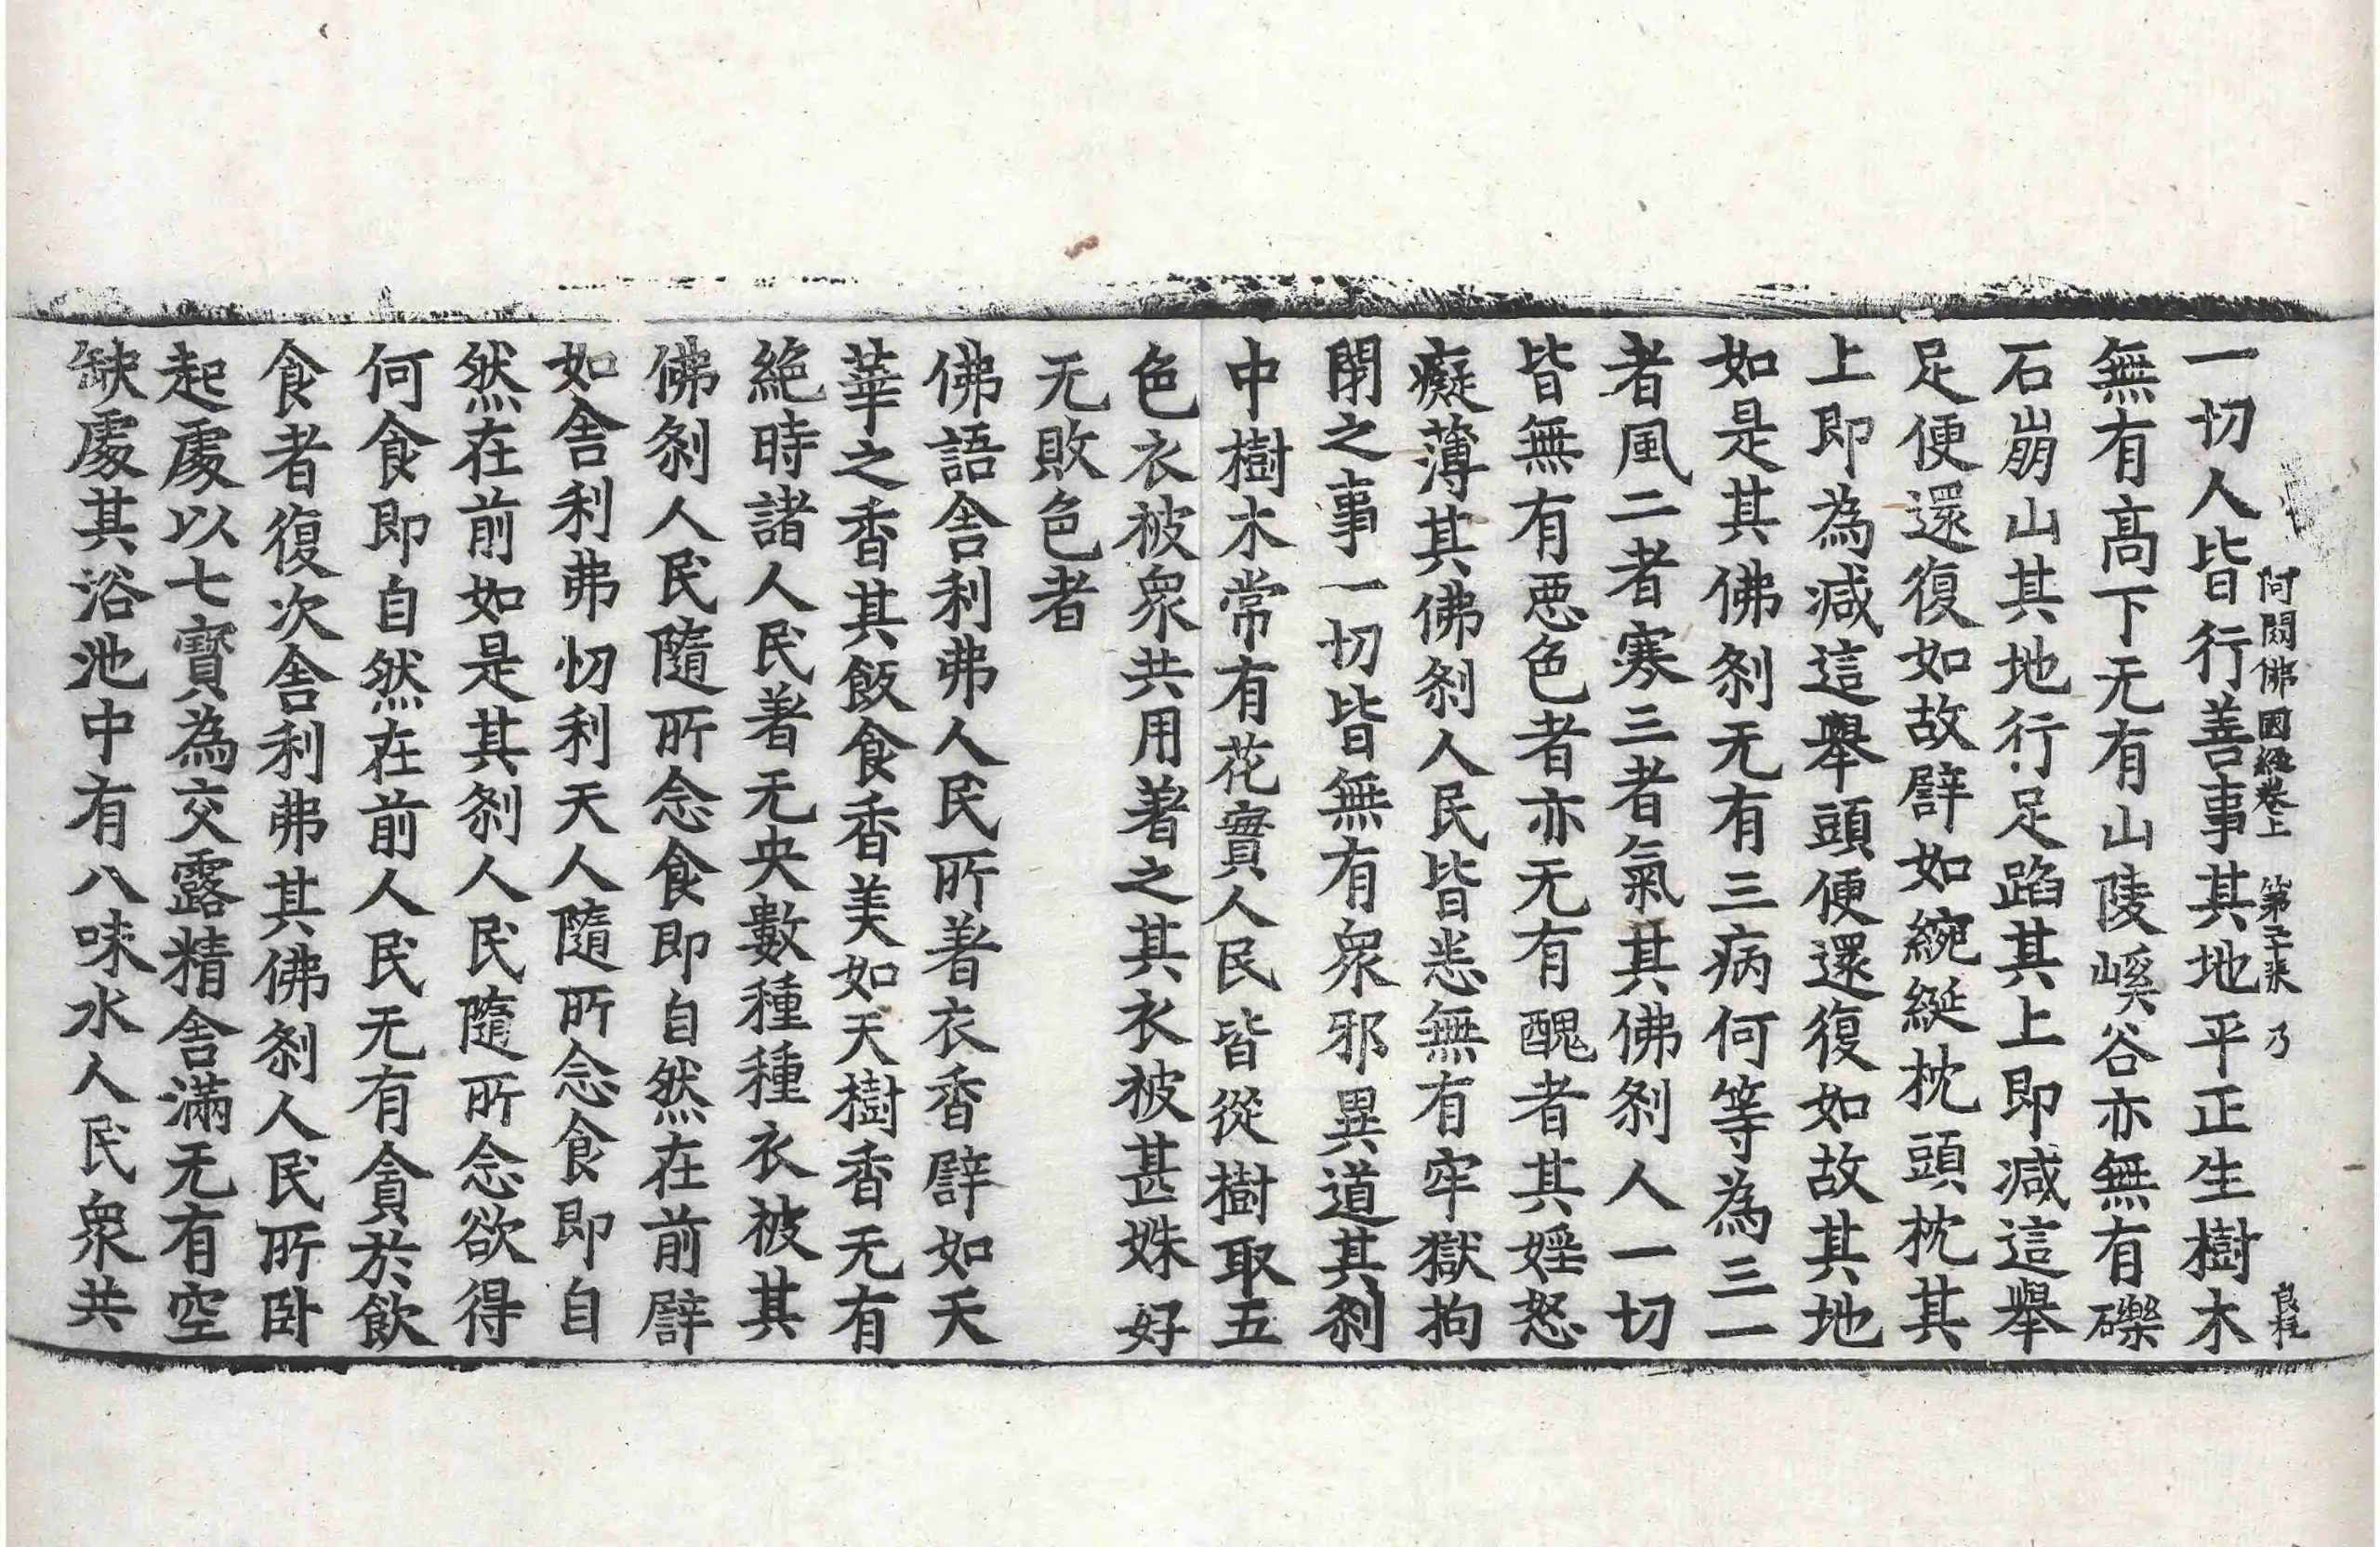 一切人皆行善事其地平正生樹木
阿閦佛國經卷上 第二十張 乃
無有高下无有山陵嵠谷亦無有礫
石崩山其地行足蹈其上即減這舉
足便還復如故譬如綩綖枕頭枕其
上即為減這舉頭便還復如故其地
如是其佛剎无有三病何等為三一
者風二者寒三者氣其佛剎人一切
皆無有惡色者亦无有醜者其婬怒
癡薄其佛剎人民皆悉無有牢獄拘
閉之事一切皆無有眾邪異道其剎
中樹木常有花實人民皆從樹取五
色衣被眾共用著之其衣被甚姝好
无敗色者
佛語舍利弗人民所著衣香譬如天
華之香其飯食香美如天樹香无有
絕時諸人民著无央數種種衣被其
佛剎人民隨所念食即自然在前譬
如舍利弗忉利天人隨所念食即自
然在前如是其剎人民隨所念欲得
何食即自然在前人民无有貪於飲
食者復次舍利弗其佛剎人民所臥
起處以七寶為交露精舍滿无有空
缺處其浴池中有八味水人民眾共